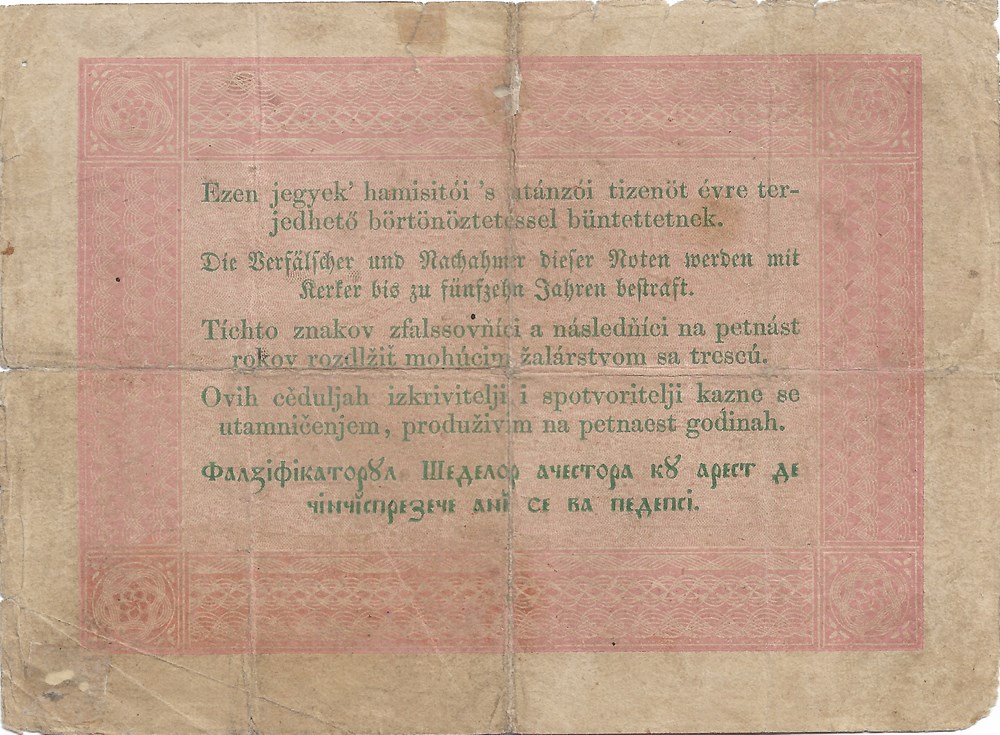 Ezen jegyek’ hamisitói ’s utánzói tizenöt évre ter-
jedhető börtönöztetéssel büntettetnek.
Die Verfälscher und Nachahmer dieser Noten werden mit
Kerker bis zu fünfzehn Jahren bestraft.
Tíchto znakov zfalssovňíci a následňíci na petnást
rokov rozdlžiť mohúcim žalárstvom sa trescú.
Ovih cěduljah izkrivitelji i spotvoritelji kazne se
utamničenjem, produživim na petnaest godinah.
Фалзіфікаторꙋл Шеделор ачестора кꙋ арест де
чінчіспрезече ані се ва педепсі.